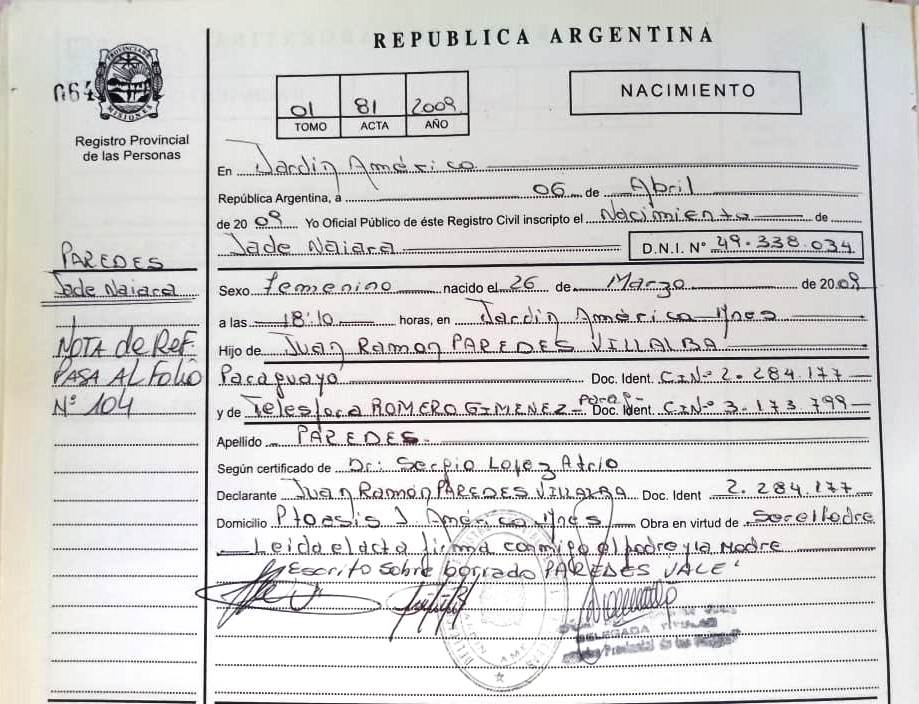 REPUBLICA ARGENTINA
064
PROVINCIA DE MISIONES
Registro Provincial
de las Personas
01 81 2009
TOMO ACTA AÑO
NACIMIENTO
En Jardin América
República Argentina, a 06 de Abril
de 2009 Yo Oficial Público de éste Registro Civil inscripto el Nacimiento de
Jade Naiara D.N.I. Nº 49.338.034
PAREDES
Jade Naiara
NOTA de Ref.
PASA AL Folio
Nº 104
Sexo femenino nacido el 26 de Marzo de 2009
a las 18:10 horas, en Jardin América Mnes
Hijo de Juan Ramon PAREDES VILLALBA
Paraguayo Doc. Ident. C.I.Nº 2.284.177
y de Telesfora ROMERO GIMENEZ - parag- Doc. Ident. C.I.Nº 3.173.799
Apellido PAREDES.
Según certificado de Dr: Sergio Lopez
Declarante Juan Ramón PAREDES VILLALBA Doc. Ident 2.284.177
Domicilio Pto J América Mnes Obra en virtud de ser el Padre
Leida el acta firma conmigo el padre y la Madre
"Escrito sobre borrado PAREDES VALE"
DELEGADA TITULAR
Registro Provincial de las Personas